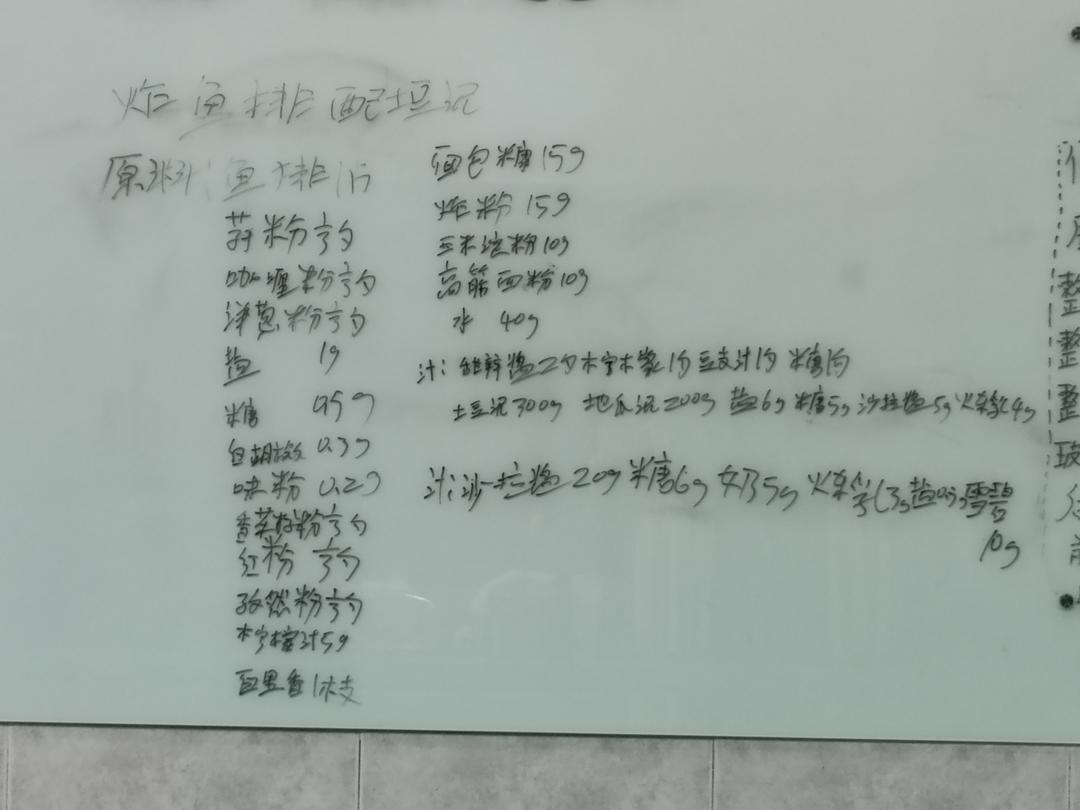 炸鱼排配土豆泥
原料：鱼排1片
蒜粉 勺
咖喱粉 勺
洋葱粉 勺
盐 1g
糖 0.5g
白胡椒 0.3g
味粉 0.2g
香菜籽粉 勺
红粉 勺
孜然粉 勺
柠檬汁5g
百里香1枝
面包糠15g
炸粉 15g
玉米淀粉10g
高筋面粉10g
水 40g
汁：甜辣酱2勺 柠檬1勺 豆支汁1勺 糖1勺
土豆泥300g 地瓜泥200g 盐6g 糖5g 沙拉酱5g 炼乳4g
汁：沙拉酱20g 糖6g 奶5g 炼乳3g 盐0.5g 雪碧
10g
整
整
整
玻